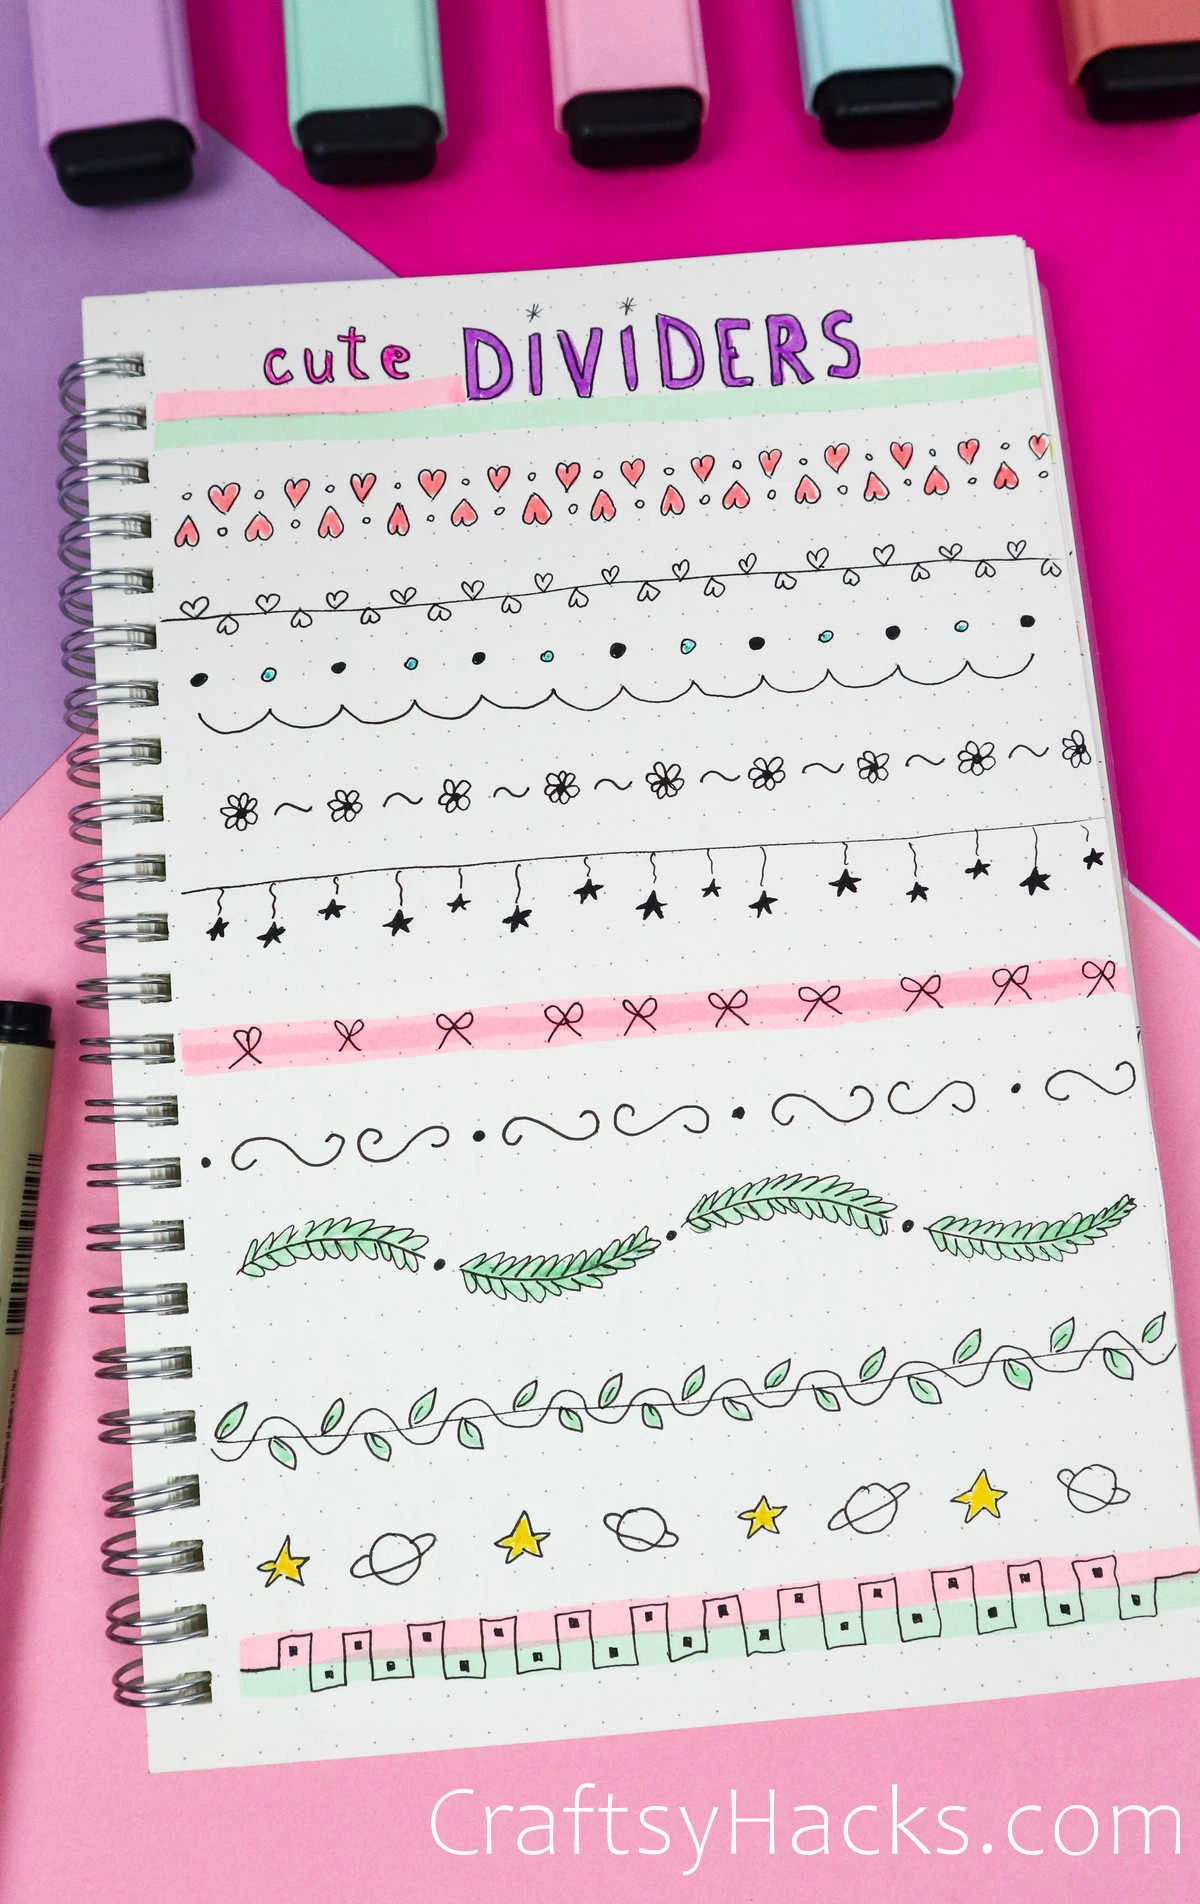 cute DiViDERS
CraftsyHacks.com